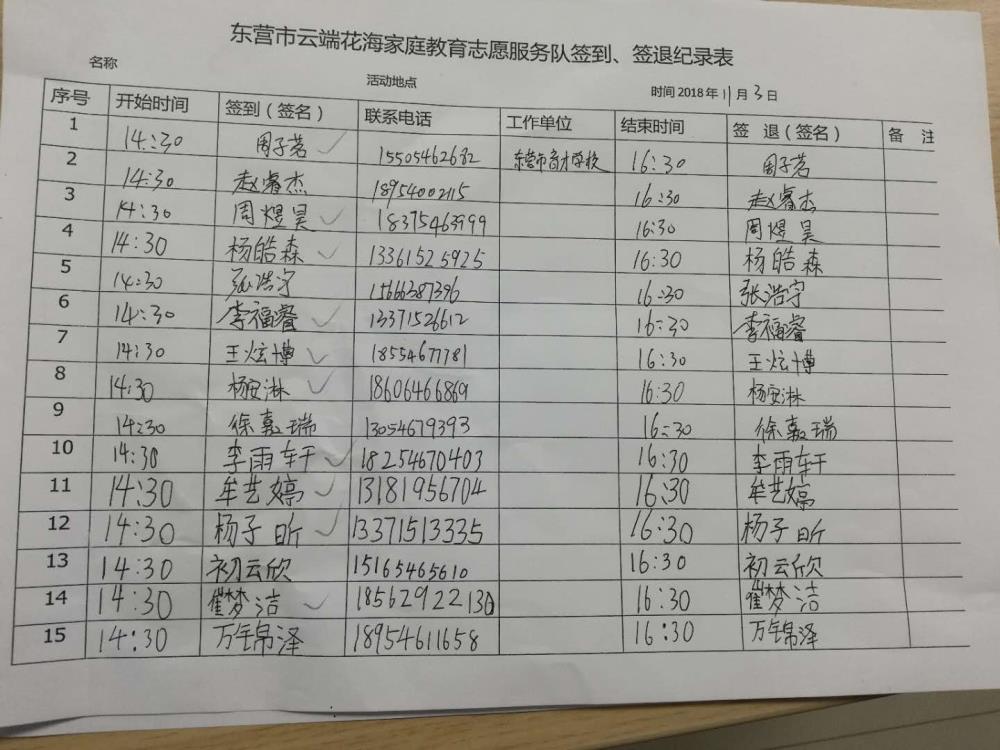 东营市云端花海家庭教育志愿服务队签到、签退纪录表
名称 活动地点 时间 2018 年 11 月 3 日
序号 开始时间 签到（签名） 联系电话 工作单位 结束时间 签 退（签名） 备 注
1 14:30 周子茗 15505462682 东营市育才学校 16:30 周子茗
2 14:30 赵睿杰 18954002115 16:30 赵睿杰
3 14:30 周煜昊 18375463999 16:30 周煜昊
4 14:30 杨皓森 13361525925 16:30 杨皓森
5 14:30 张浩宇 15666387396 16:30 张浩宇
6 14:30 李福睿 13371526612 16:30 李福睿
7 14:30 王炫博 18554677781 16:30 王炫博
8 14:30 杨安淋 18606466869 16:30 杨安淋
9 14:30 徐嘉瑞 13054679393 16:30 徐嘉瑞
10 14:30 李雨轩 18254670403 16:30 李雨轩
11 14:30 牟艺婷 13181956704 16:30 牟艺婷
12 14:30 杨子昕 13371513335 16:30 杨子昕
13 14:30 初云欣 15165465610 16:30 初云欣
14 14:30 崔梦洁 18562922130 16:30 崔梦洁
15 14:30 万锦泽 18954611658 16:30 万锦泽